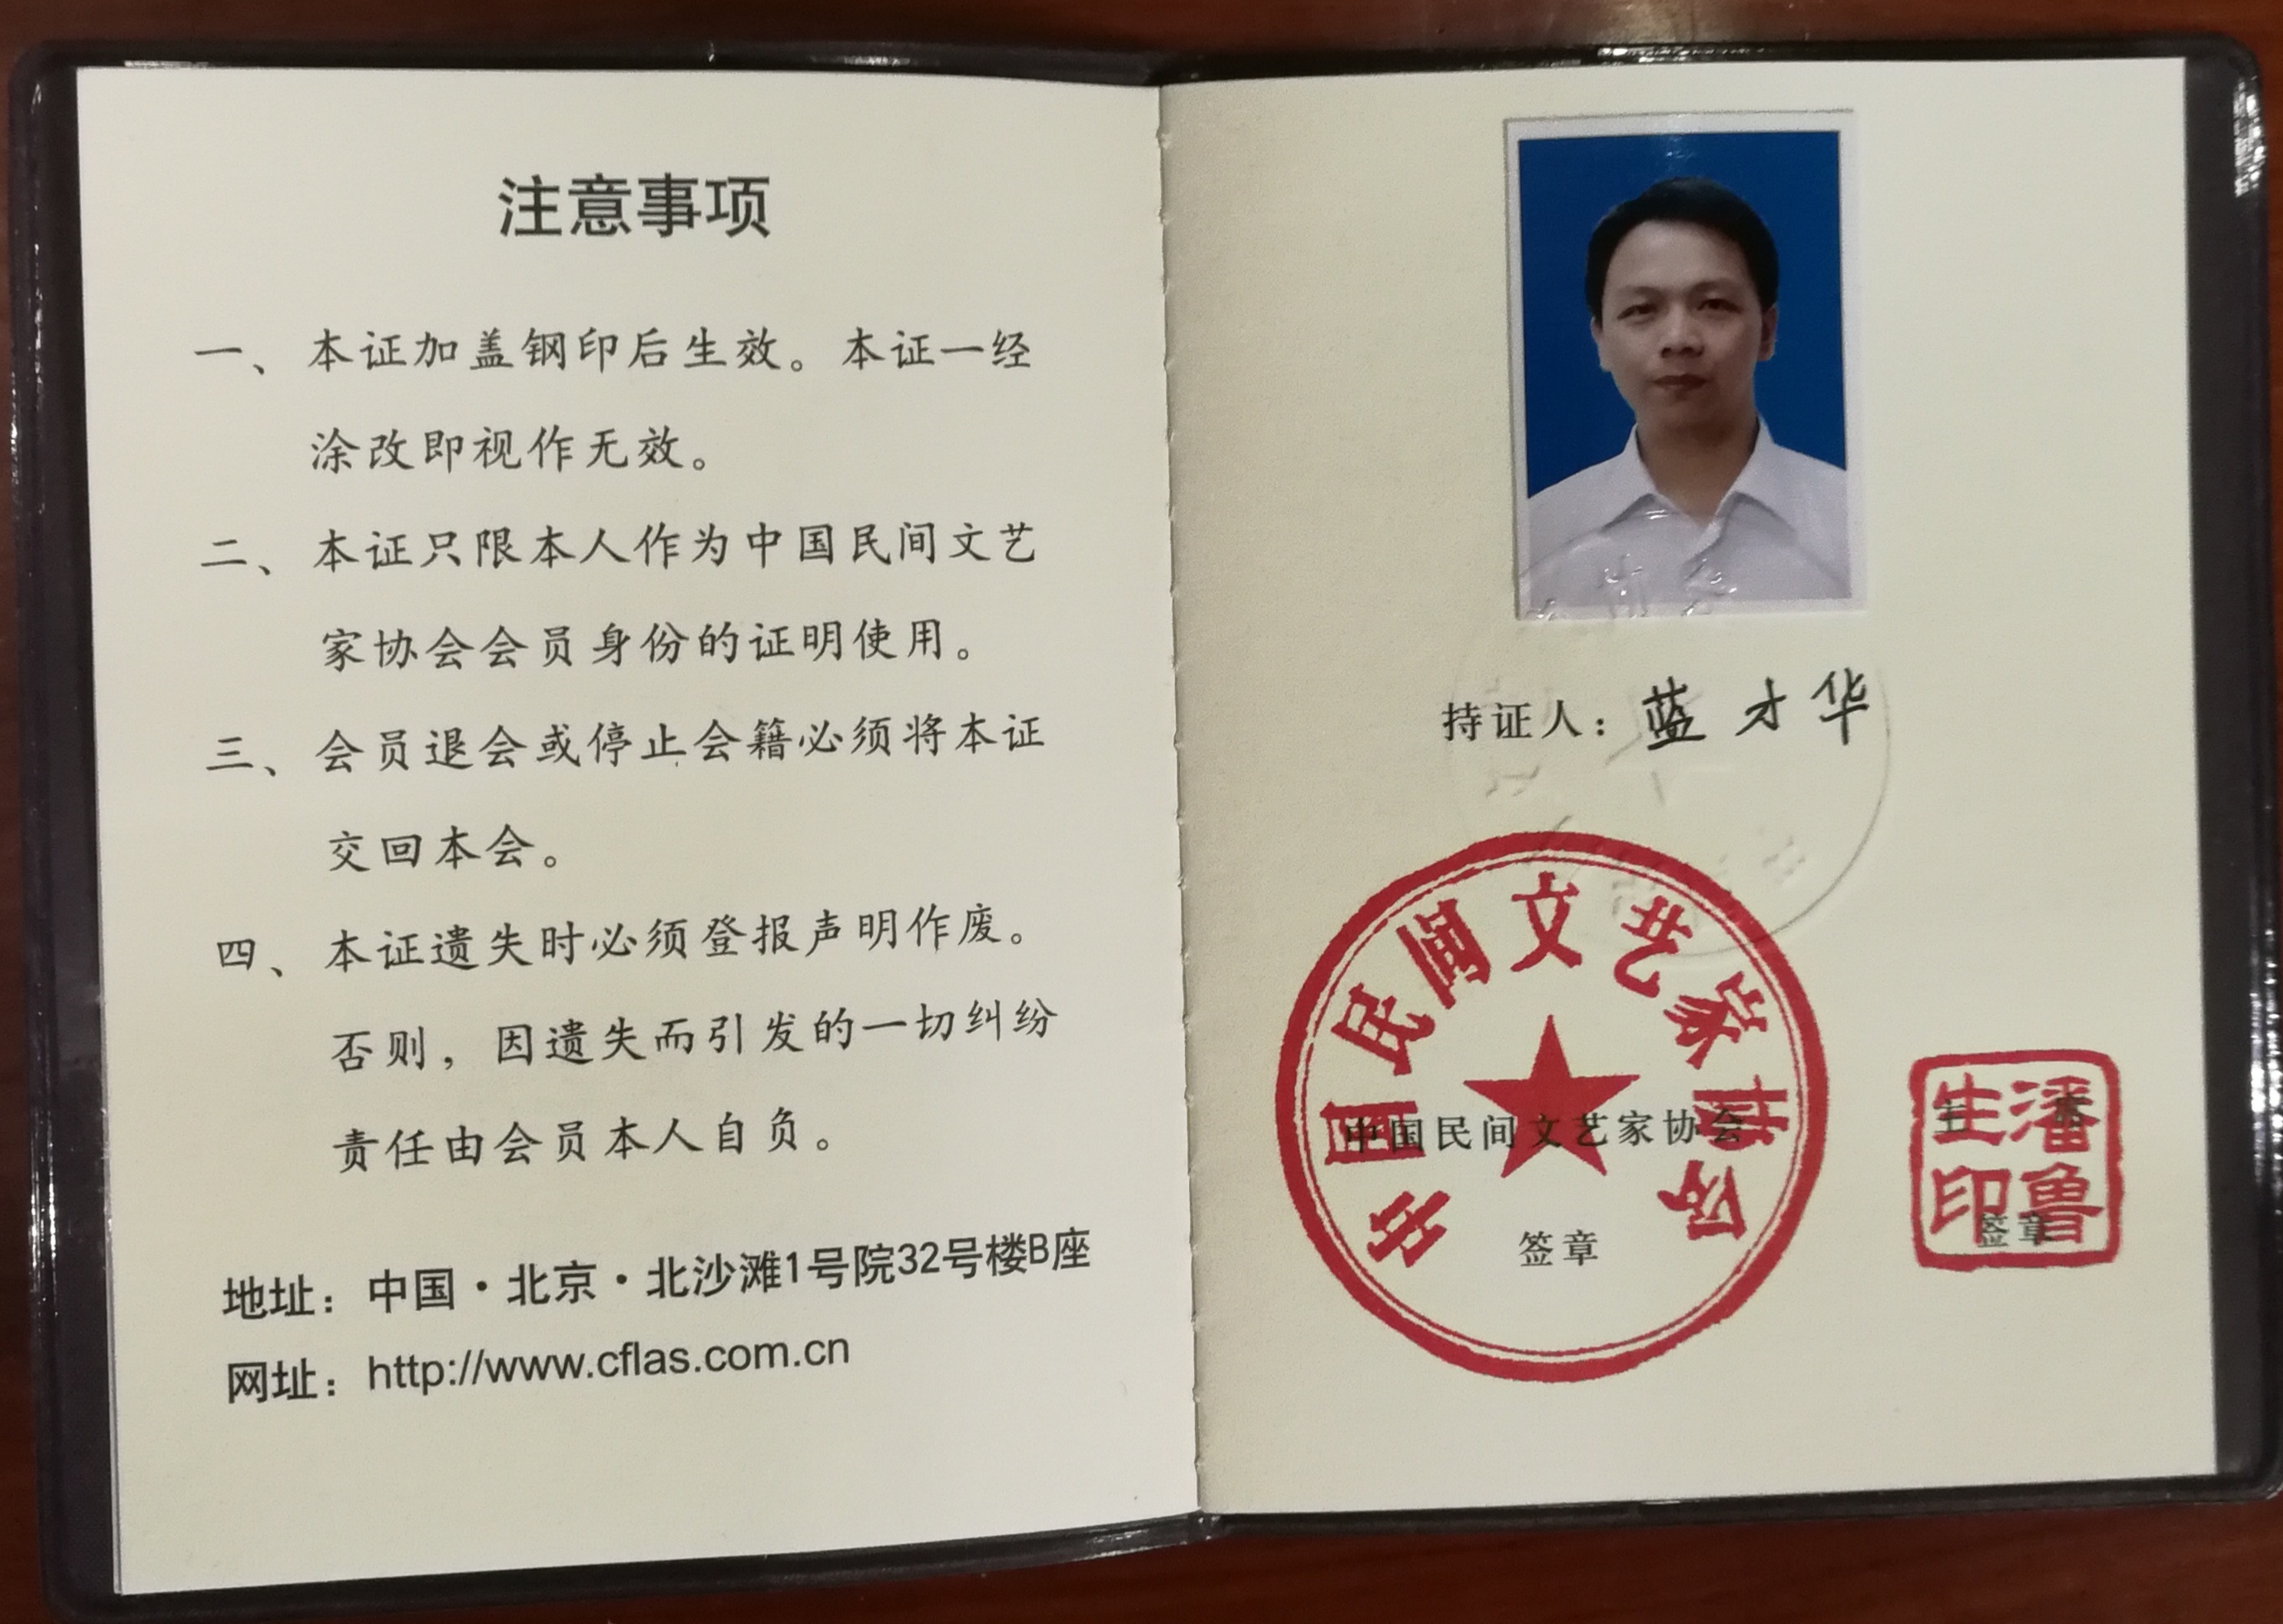 注意事项
一、本证加盖钢印后生效。本证一经
涂改即视作无效。
二、本证只限本人作为中国民间文艺
家协会会员身份的证明使用。
三、会员退会或停止会籍必须将本证
交回本会。
四、本证遗失时必须登报声明作废。
否则，因遗失而引发的一切纠纷
责任由会员本人自负。
地址：中国·北京·北沙滩1号院32号楼B座
网址：http://www.cflas.com.cn
持证人：蓝才华
中国民间文艺家协会
中国民间文艺家协会
签章
潘鲁生印
签章